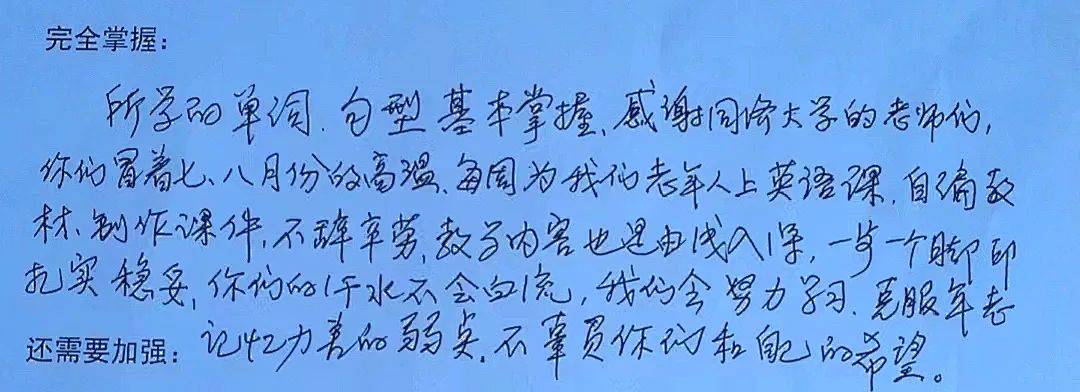 完全掌握：
所学的单词、句型基本掌握、感谢同济大学的老师们，
你们冒着七、八月份的高温、每周为我们老年人上英语课、自编教
材、制作课件，不辞辛劳，教学内容也是由浅入深，一步一个脚印
扎实稳妥，你们的汗水不会白流，我们会努力学习、克服年老
还需要加强：记忆力差的弱点，不辜负你们和自己的希望。